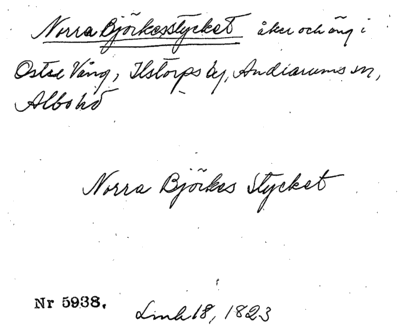 Norra Björkesstycket åker och äng i
Östre Vång, Ilstorps by, Andrarums sn,
Albo hd
Norra Björkes Stycket
Nr 5938.
Lmh 18, 1823